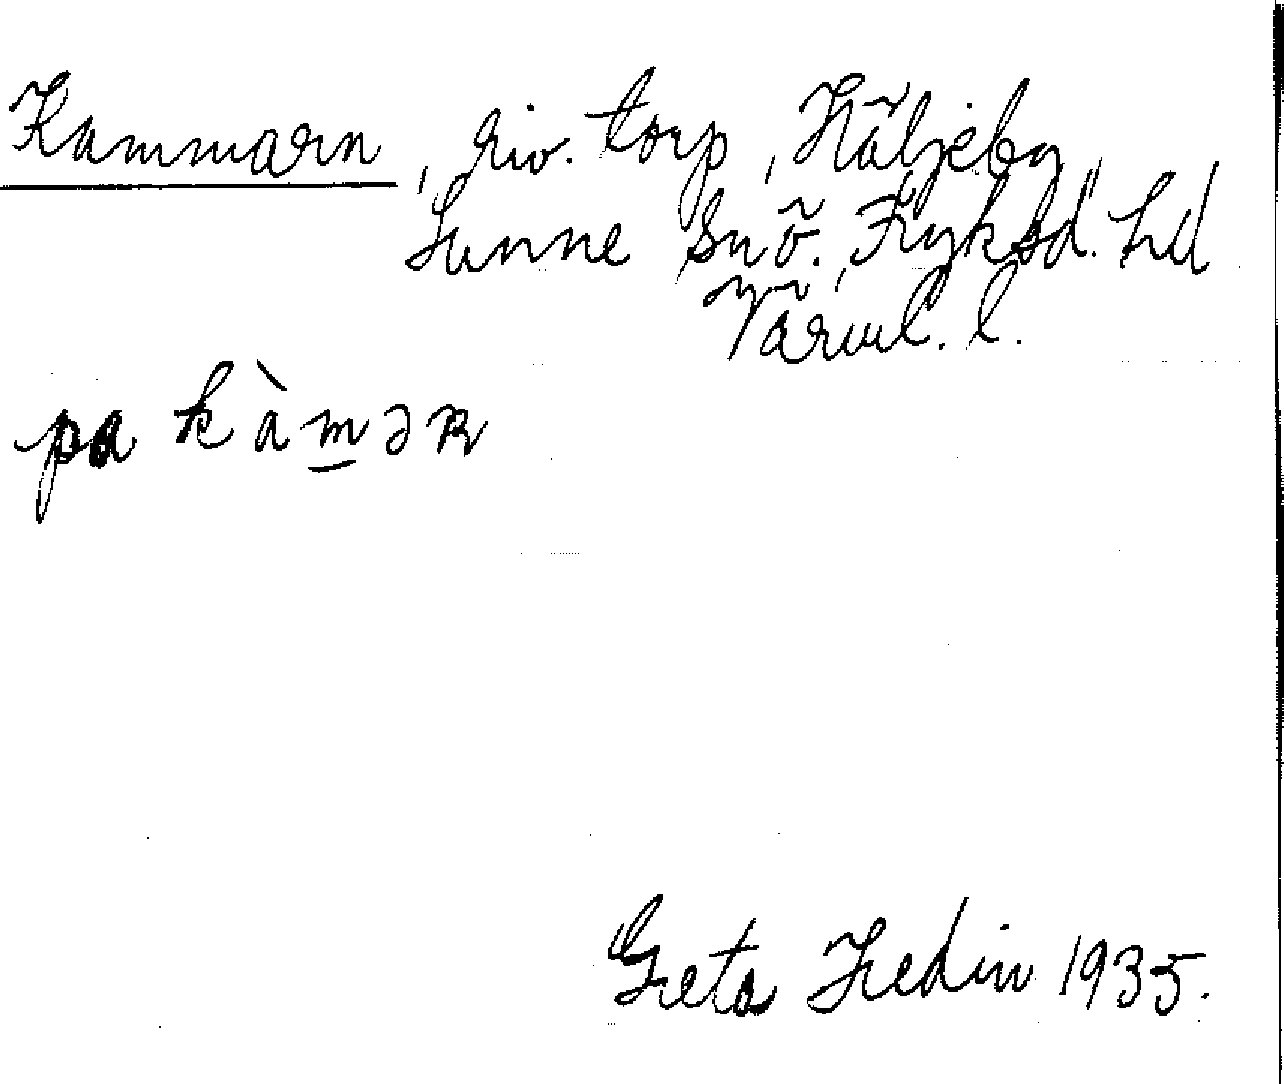 Kammarn, riv. torp, Häljeby
Sunne snö. Fryksd. hd
Värml. l.
pa kàmən
Greta Hedin 1935.